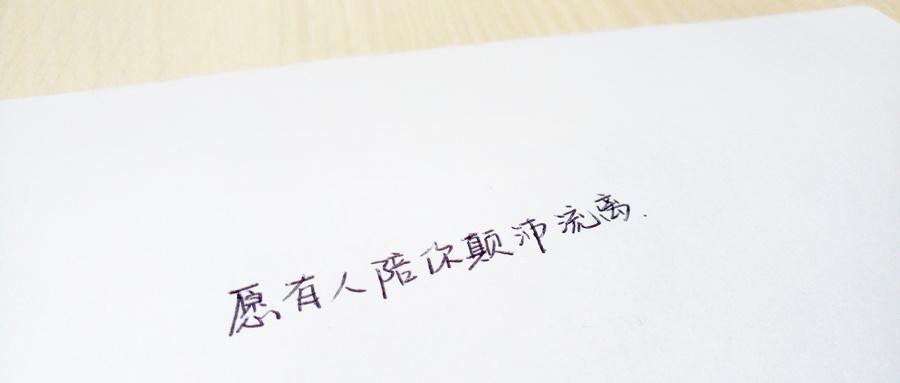 愿有人陪你颠沛流离.